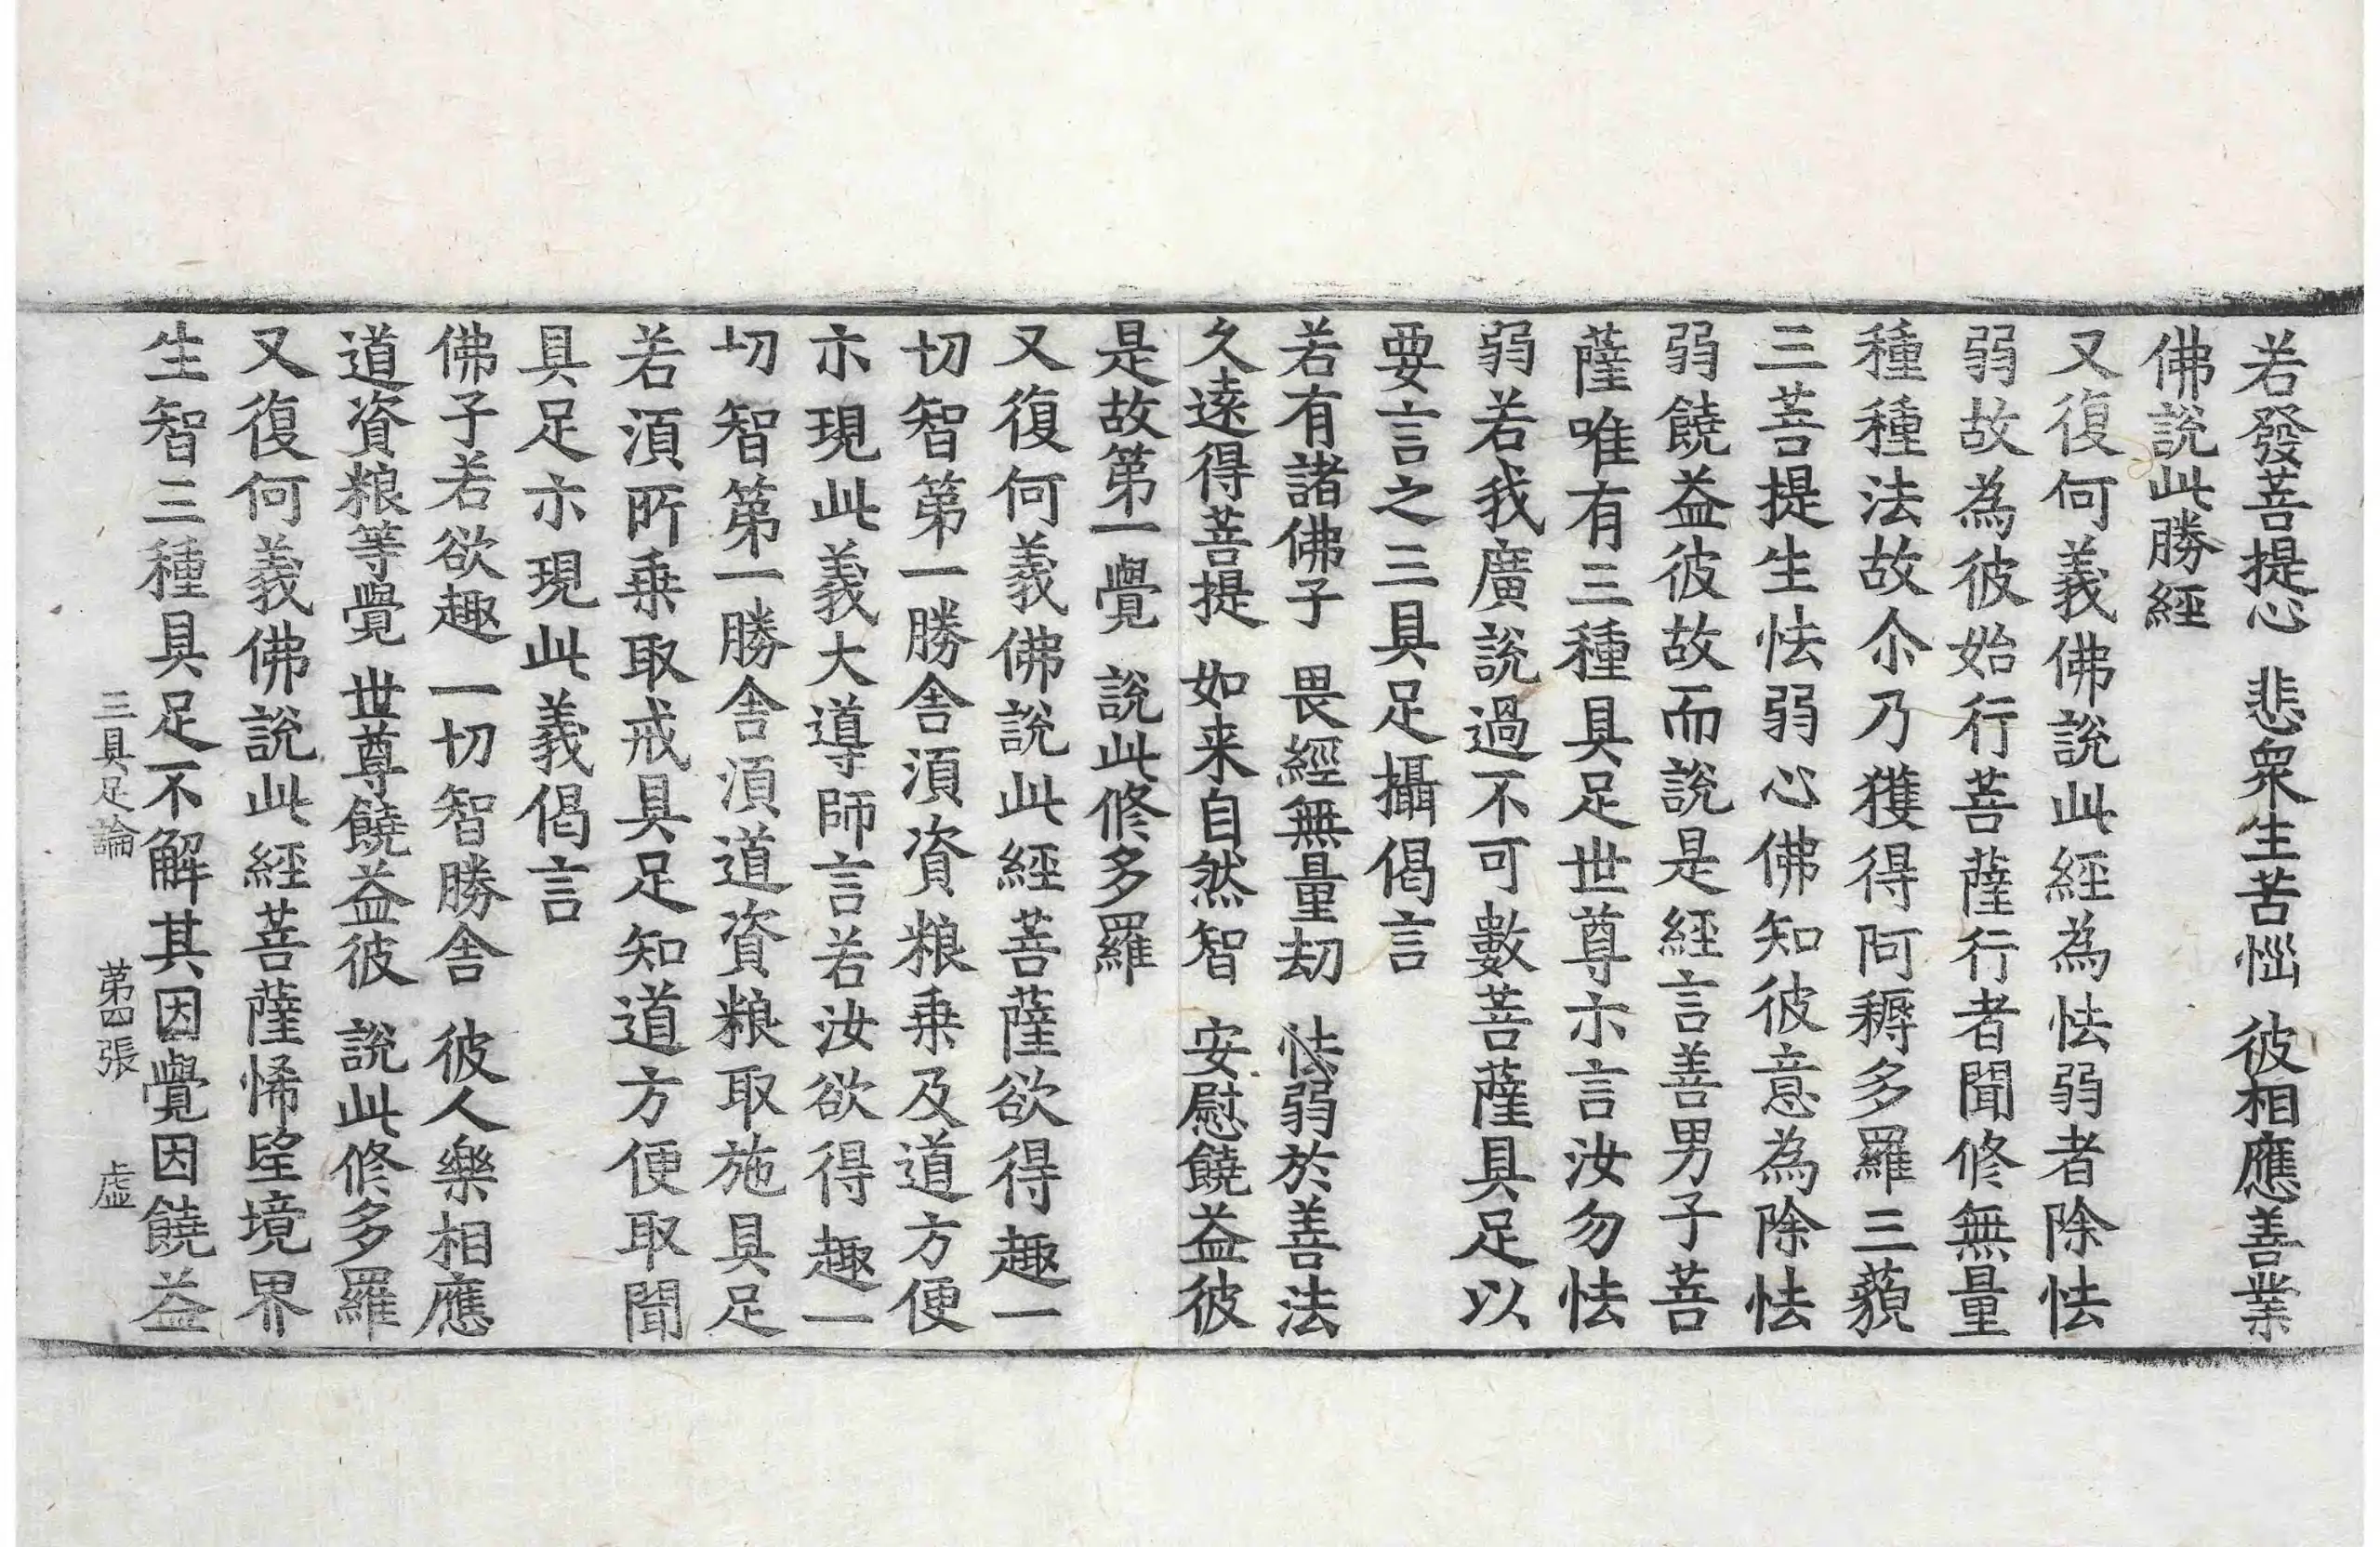 若發菩提心　悲衆生苦惱　彼相應善業
佛說此勝經
又復何義佛說此經為怯弱者除怯
弱故為彼始行菩薩行者聞修無量
種種法故尒乃獲得阿耨多羅三藐
三菩提生怯弱心佛知彼意為除怯
弱饒益彼故而說是經言善男子菩
薩唯有三種具足世尊亦言汝勿怯
弱若我廣說過不可數菩薩具足以
要言之三具足攝偈言
若有諸佛子　畏經無量劫　怯弱於善法
久遠得菩提　如来自然智　安慰饒益彼
是故第一覺　說此修多羅
又復何義佛說此經菩薩欲得趣一
切智第一勝舍須資粮乗及道方便
亦現此義大導師言若汝欲得趣一
切智第一勝舍須道資粮取施具足
若須所乗取戒具足知道方便取聞
具足亦現此義偈言
佛子若欲趣　一切智勝舍　彼人樂相應
道資粮等覺　世尊饒益彼　說此修多羅
又復何義佛說此經菩薩悕望境界
生智三種具足不解其因覺因饒益
三具足論　第四張　虛